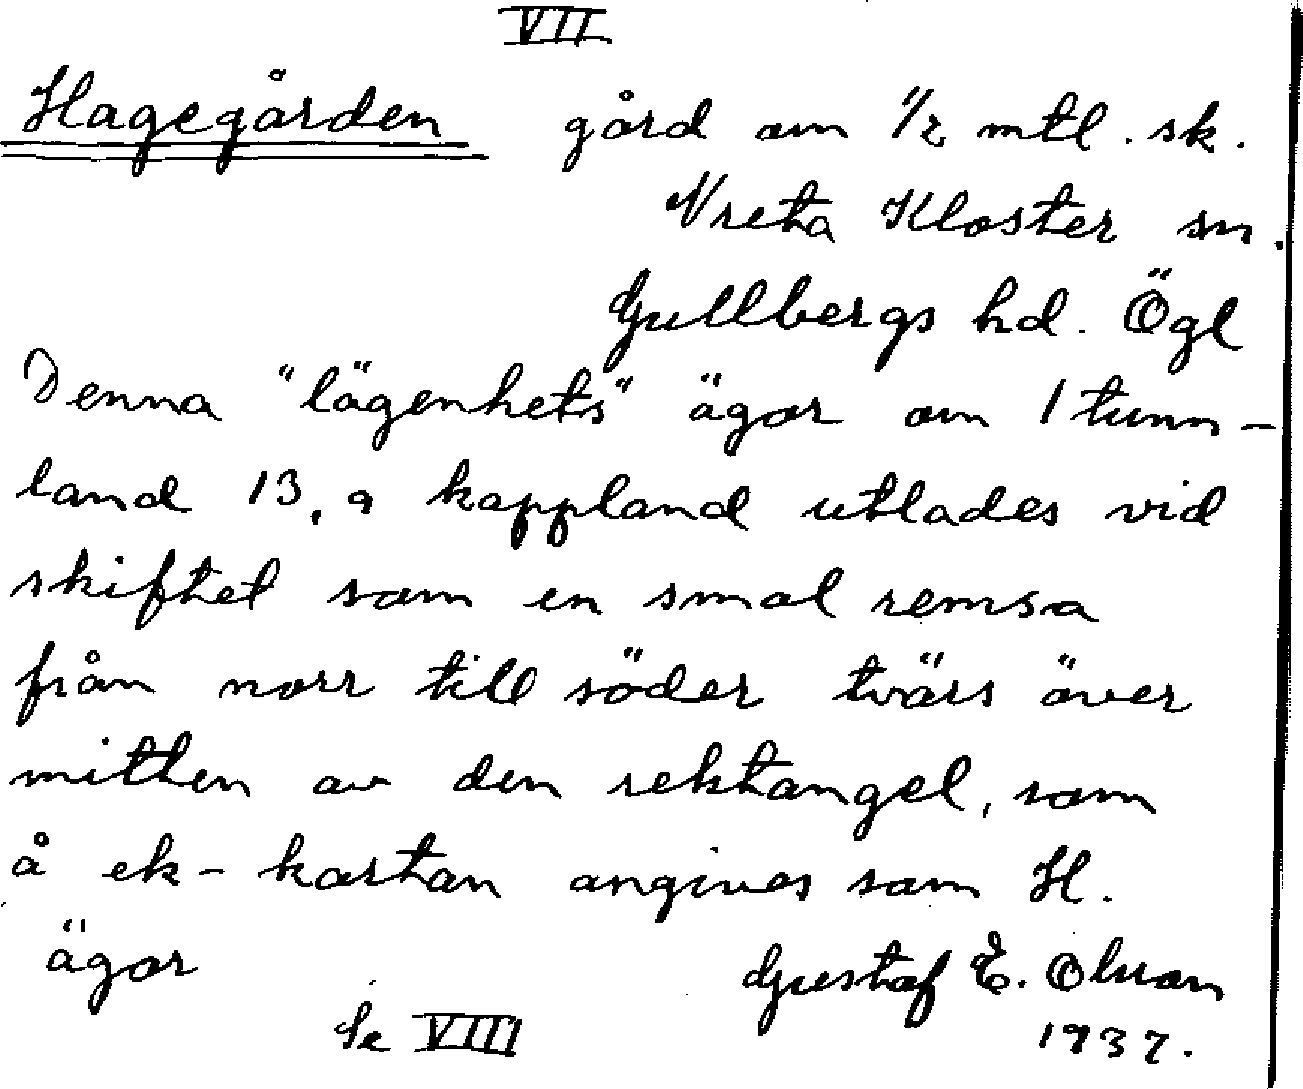 VII
Hagegården gård om 1/2 mtl. sk.
Vreta Kloster sn.
Gullbergs hd. Ögl
Denna "lägenhets" ägor om 1 tunn-
land 13,9 kappland utlades vid
skiftet som en smal remsa
från norr till söder tvärs över
mitten av den rektangel, som
å ek-kartan angives som H.
ägor
Gustaf E. Olsson
Se VIII 1937.